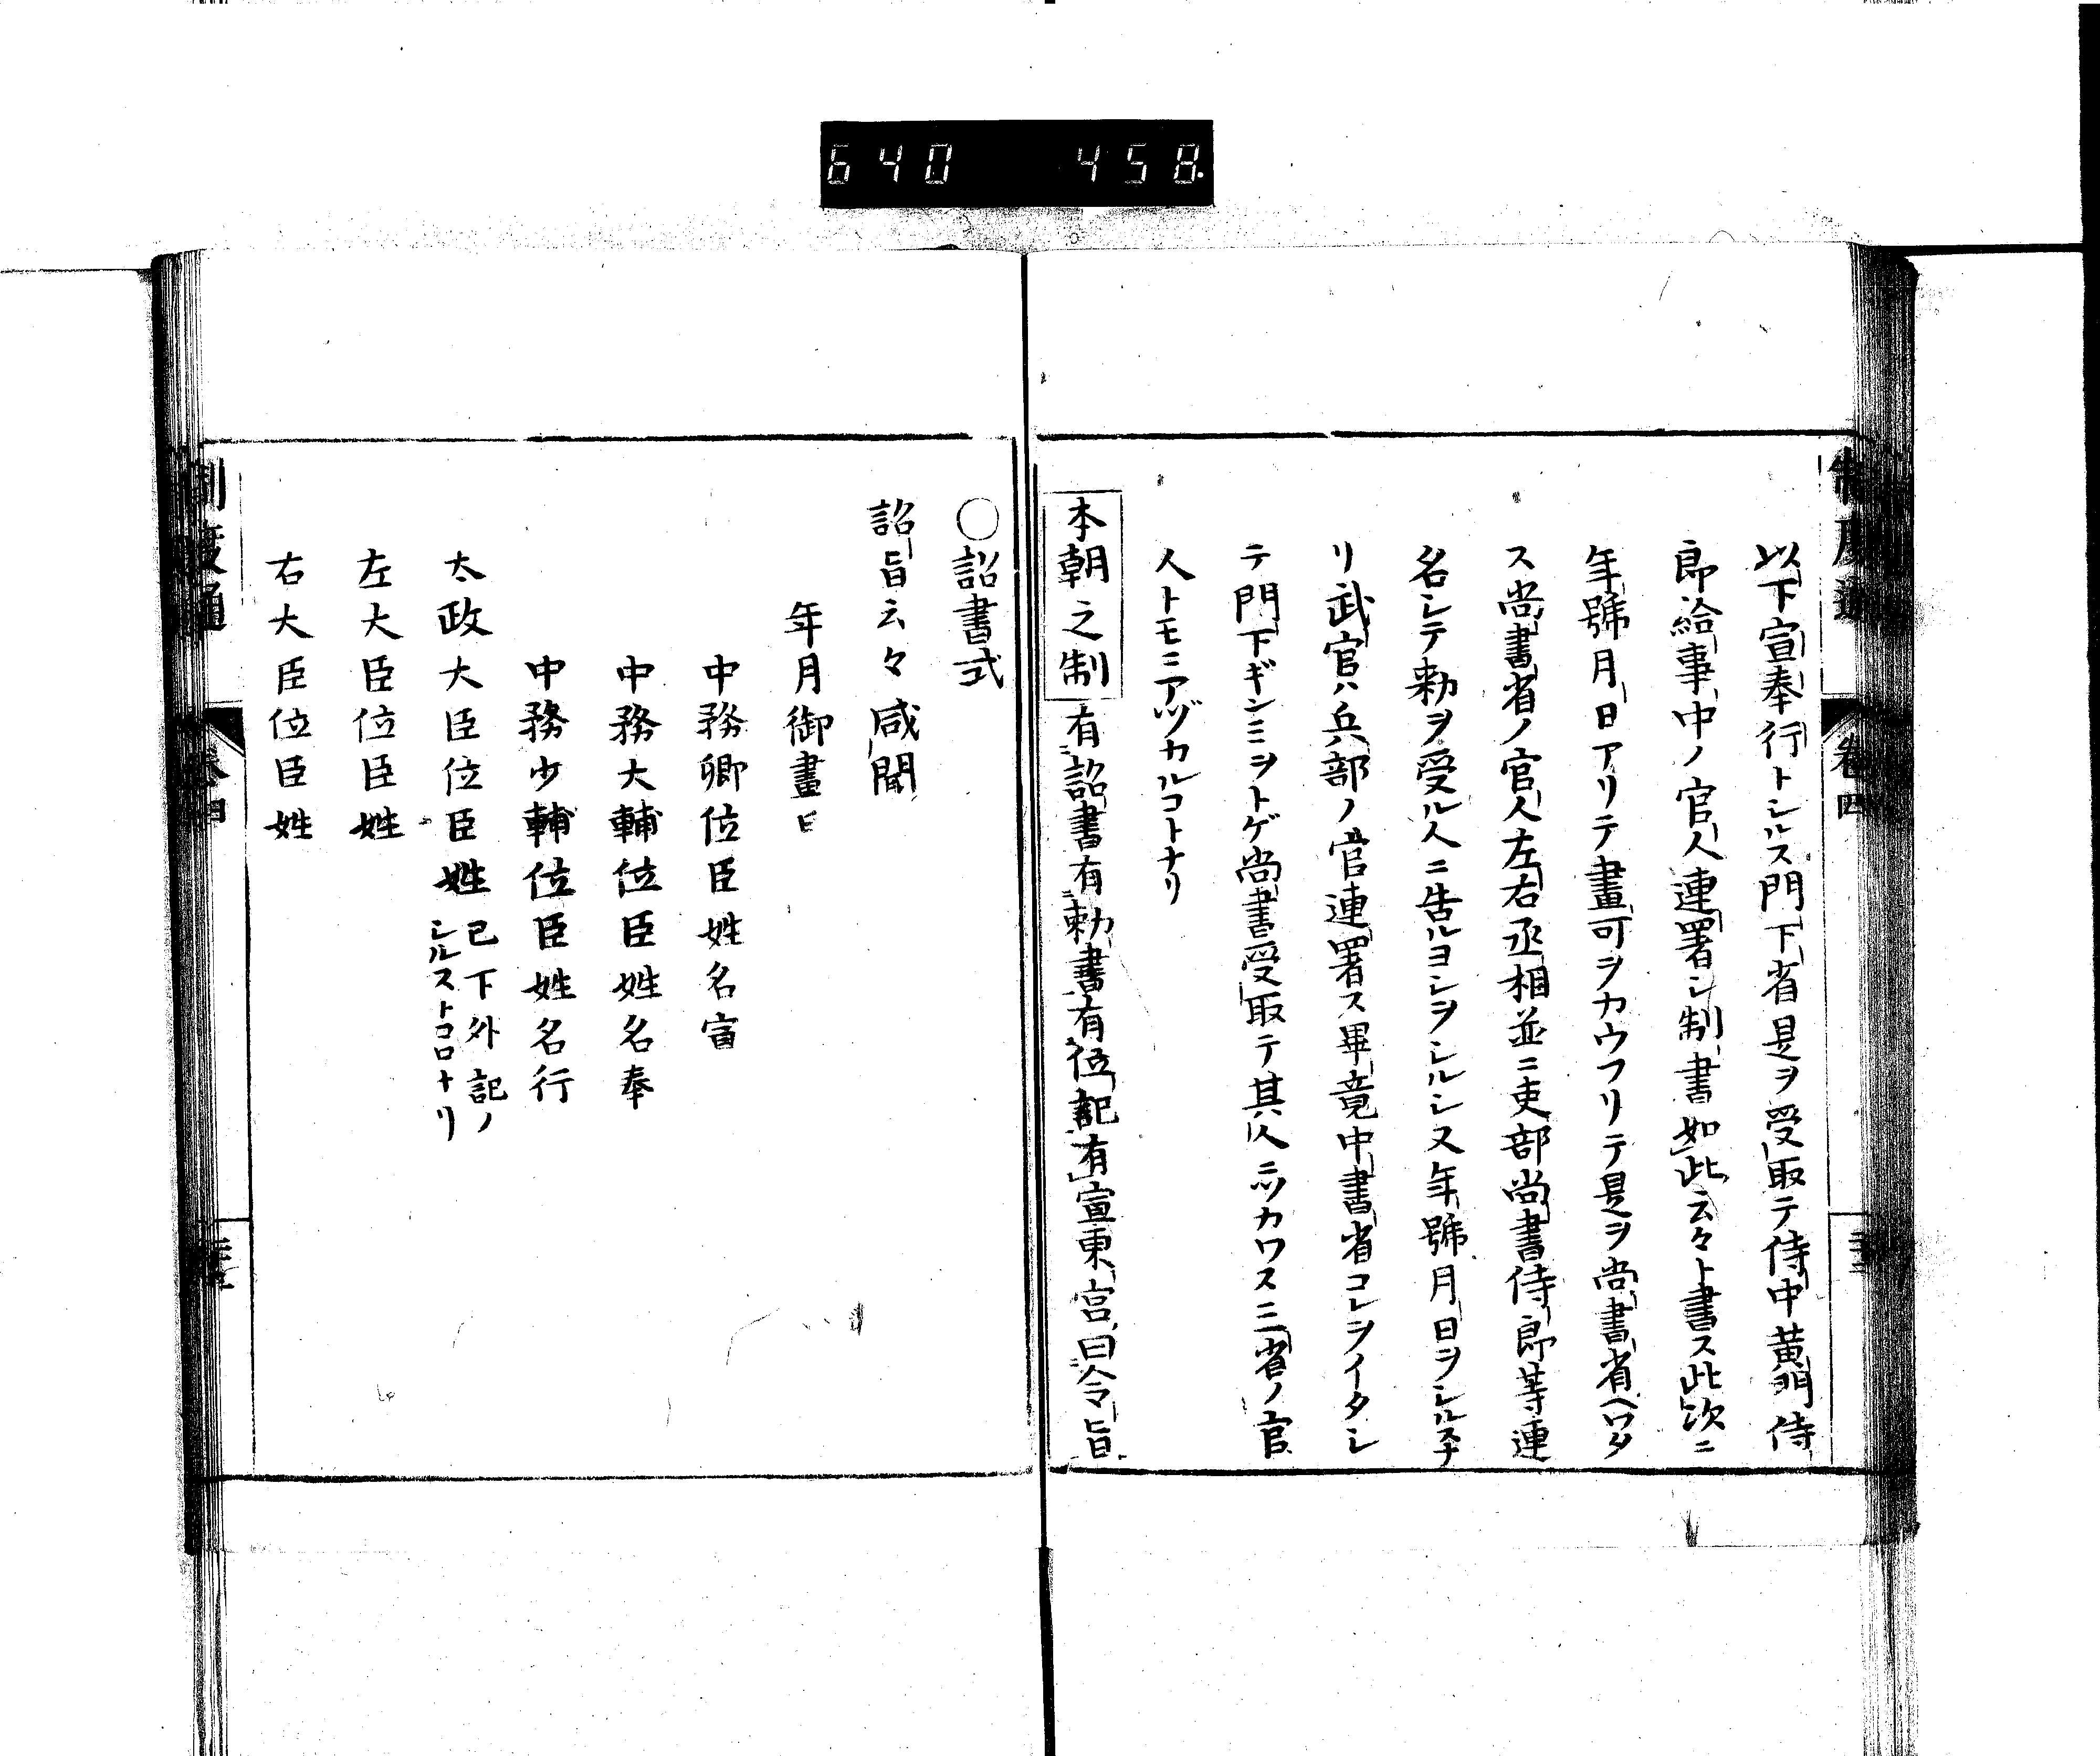 640 458.
制度通 卷四
以下宣奉行トシルス門下省是ヲ受取テ侍中黄門侍
郎給事中ノ官人連署シ制書如此云々ト書ス此次ニ
年號月日アリテ畫可ヲカウフリテ是ヲ尚書省ヘワタ
ス尚書省ノ官人左右丞相並ニ吏部尚書侍郎等連
名シテ勅ヲ受ル人ニ告ルヨシヲシルシ又年號月日ヲシルスナ
リ武官ハ兵部ノ官連署ス畢竟中書省コレヲイタシ
テ門下ギンミヲトゲ尚書受取テ其人ニツカワス三省ノ官
人トモニアヅカルコトナリ
本朝之制 有詔書有勅書有位記有宣東宮曰令旨
○詔書式
詔旨云々咸聞
年月御畫日
中務卿位臣姓名宣
中務大輔位臣姓名奉
中務少輔位臣姓名行
太政大臣位臣姓 已下外記ノ
シルストコロナリ
左大臣位臣姓
右大臣位臣姓
制度通 卷四